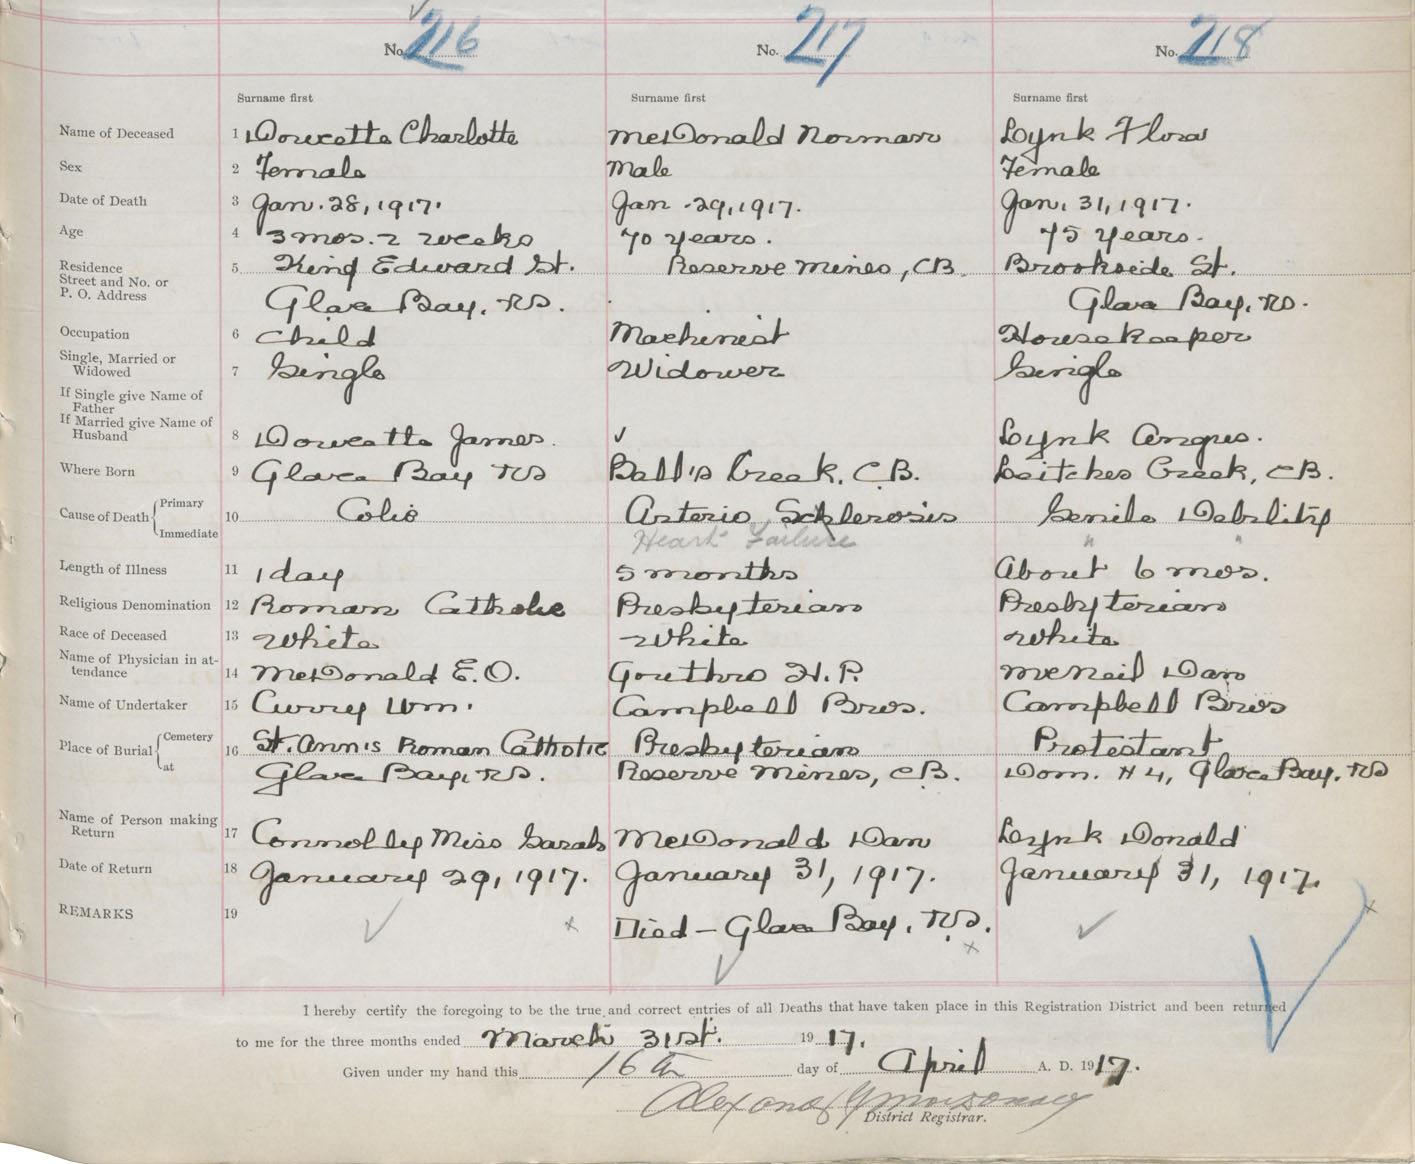 No. 216 No. 217 No. 218
Surname first Surname first Surname first
Name of Deceased 1 Doucette Charlotte McDonald Norman Lynk Flora
Sex 2 Female Male Female
Date of Death 3 Jan. 28, 1917. Jan. 29, 1917. Jan. 31, 1917.
Age 4 3 mos. 2 weeks 70 years. 75 years.
Residence 5 King Edward St. Reserve Mines, C.B. Brookside St.
Street and No. or
P. O. Address Glace Bay, N.S. Glace Bay, N.S.
Occupation 6 Child Machinist Housekeeper
Single, Married or
Widowed 7 Single Widower Single
If Single give Name of
Father
If Married give Name of
Husband 8 Doucette James. ✓ Lynk Angus.
Where Born 9 Glace Bay N.S. Ball's Creek, C.B. Leitches Creek, C.B.
Cause of Death { Primary 10 Colic Arterio Sclerosis Senile Debility
Immediate Heart Failure " "
Length of Illness 11 1 day 5 months About 6 mos.
Religious Denomination 12 Roman Catholic Presbyterian Presbyterian
Race of Deceased 13 White White White
Name of Physician in at-
tendance 14 McDonald E.O. Gouthro H.P. McNeil Dan
Name of Undertaker 15 Curry Wm. Campbell Bros. Campbell Bros
Place of Burial { Cemetery 16 St. Ann's Roman Catholic Presbyterian Protestant
at Glace Bay, N.S. Reserve Mines, C.B. Dom. # 4, Glace Bay, N.S
Name of Person making
Return 17 Connolly Miss Sarah McDonald Dan Lynk Donald
Date of Return 18 January 29, 1917. January 31, 1917. January 31, 1917.
REMARKS 19 Died - Glace Bay, N.S.
I hereby certify the foregoing to be the true and correct entries of all Deaths that have taken place in this Registration District and been returned
to me for the three months ended March 31st. 1917.
Given under my hand this 16th day of April A. D. 1917.
District Registrar.